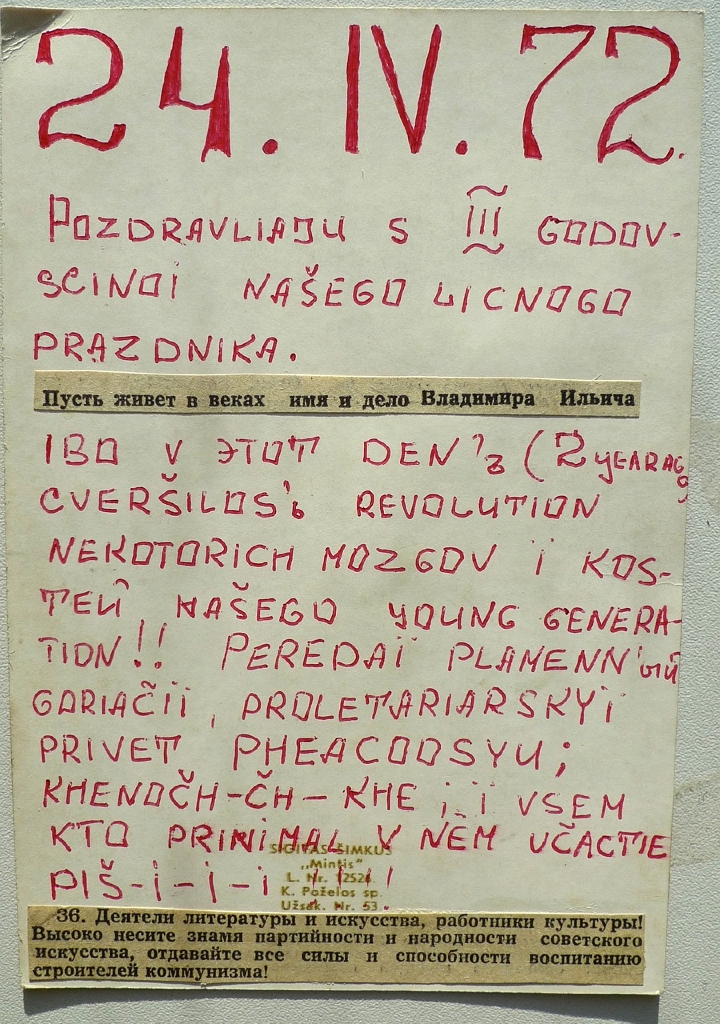 24. IV. 72.
POZDRAVLIAJU S III GODOV-
SCINOI NAŠEGO LICNOGO
PRAZDNIKA.
Пусть живет в веках имя и дело Владимира Ильича
IBO V ЭTOT DEN'ь (2 YEAR AGO
CVERŠILOS'ь REVOLUTION
NEKOTORICH MOZGOV Ï KOS-
TEЙ NAŠEGO YOUNG GENERA-
TION!! PEREDAÏ PLAMENN'ЫЙ
GORIAČIÏ, PROLETARIARSKYÏ
PRIVET PHEACOOSYU;
KHENOČH-ČH-KHE ; Ï VSEM
KTO PRINIMAL V NËM UČASTIE
PIŠ-I-I-I !!!
SIGITAS ŠIMKUS
„Mintis"
L. Nr. 12524
K. Poželos sp.
Užsak. Nr. 53.
36. Деятели литературы и искусства, работники культуры!
Высоко несите знамя партийности и народности советского
искусства, отдавайте все силы и способности воспитанию
строителей коммунизма!